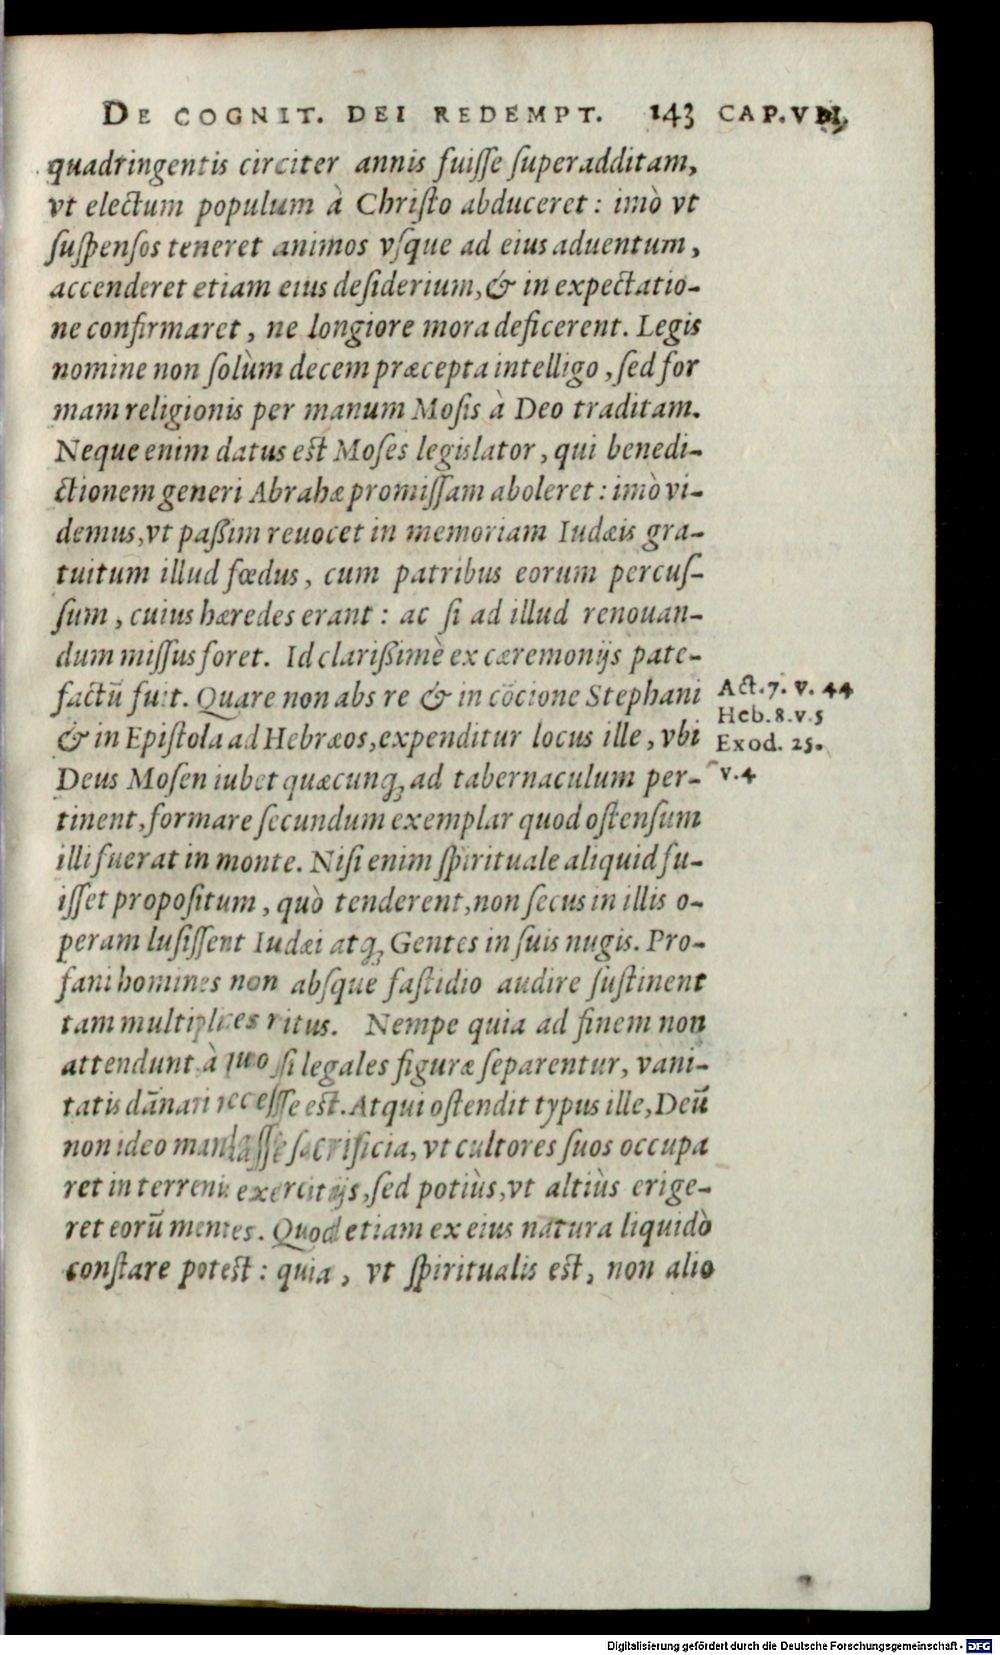 DE COGNIT. DEI REDEMPT. 143 CAP.VII.
quadringentis circiter annis fuiſſe ſuperadditam,
vt electum populum à Chriſto abduceret : imò vt
ſuſpenſos teneret animos vſque ad eius aduentum,
accenderet etiam eius deſiderium, & in expectatio-
ne confirmaret, ne longiore mora deficerent. Legis
nomine non ſolùm decem præcepta intelligo, ſed for
mam religionis per manum Moſis à Deo traditam.
Neque enim datus eſt Moſes legislator, qui benedi-
ctionem generi Abrahæ promiſſam aboleret : imò vi-
demus, vt paßim reuocet in memoriam Iudæis gra-
tuitum illud fœdus, cum patribus eorum percuſ-
ſum, cuius hæredes erant : ac ſi ad illud renouan-
dum miſſus foret. Id clarißimè ex cæremonijs pate-
factū fuit. Quare non abs re & in cōcione Stephani
& in Epiſtola ad Hebræos, expenditur locus ille, vbi
Deus Moſen iubet quæcunq; ad tabernaculum per-
tinent, formare ſecundum exemplar quod oſtenſum
illi fuerat in monte. Niſi enim ſpirituale aliquid fu-
iſſet propoſitum, quò tenderent, non ſecus in illis o-
peram luſiſſent Iudæi atq; Gentes in ſuis nugis. Pro-
fani homines non abſque faſtidio audire ſuſtinent
tam multiplices ritus. Nempe quia ad finem non
attendunt à quo ſi legales figuræ ſeparentur, vani-
tatis dānari neceſſe eſt. Atqui oſtendit typus ille, Deū
non ideo mandaſſe ſacrificia, vt cultores ſuos occupa
ret in terrenis exercitijs, ſed potiùs, vt altiùs erige-
ret eorū mentes. Quod etiam ex eius natura liquidò
conſtare poteſt : quia, vt ſpiritualis eſt, non alio
Act. 7. v. 44
Heb. 8. v. 5
Exod. 25.
v. 4
Digitalisierung gefördert durch die Deutsche Forschungsgemeinschaft - DFG